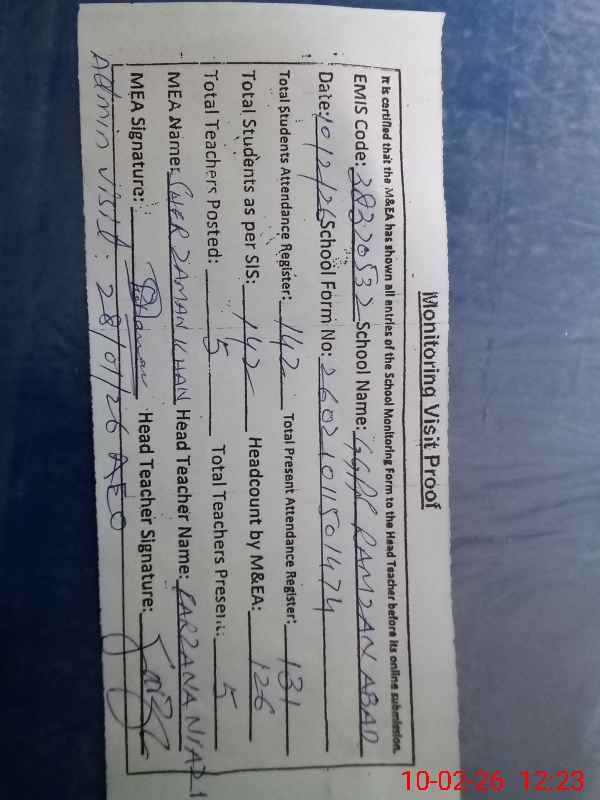 Monitoring Visit Proof
It is certified that the M&EA has shown all entries of the School Monitoring Form to the Head Teacher before its online submission.
EMIS Code: 38320532 School Name: GGPS RAMZAN ABAD
Date: 10/2/26 School Form No: 26021011501474
Total Students Attendance Register: 142 Total Present Attendance Register: 131
Total Students as per SIS: 142 Headcount by M&EA: 126
Total Teachers Posted: 5 Total Teachers Present: 5
MEA Name: SHER ZAMAN KHAN Head Teacher Name: FARZANA NIAZI
MEA Signature: Head Teacher Signature:
Admin visit: 28/01/26 AEO
10-02-26 12:23